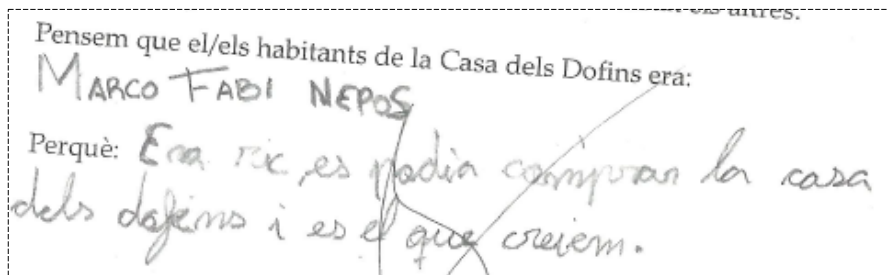 els altres.
Pensem que el/els habitants de la Casa dels Dofins era:
MARCO FABI NEPOS
Perquè: Era ric, es podia compran la casa
dels dofins i es el que creiem.